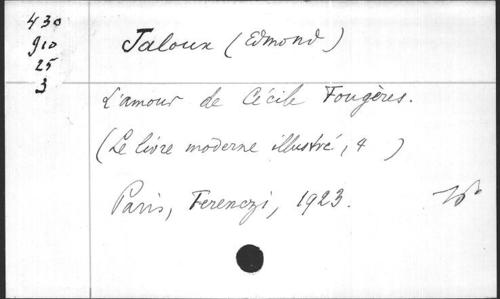 430
910
25
3
Jaloux (Edmond)
L'amour de Cécile Fougères.
(Le livre moderne illustré, 4 )
Paris, Ferenczi, 1923.